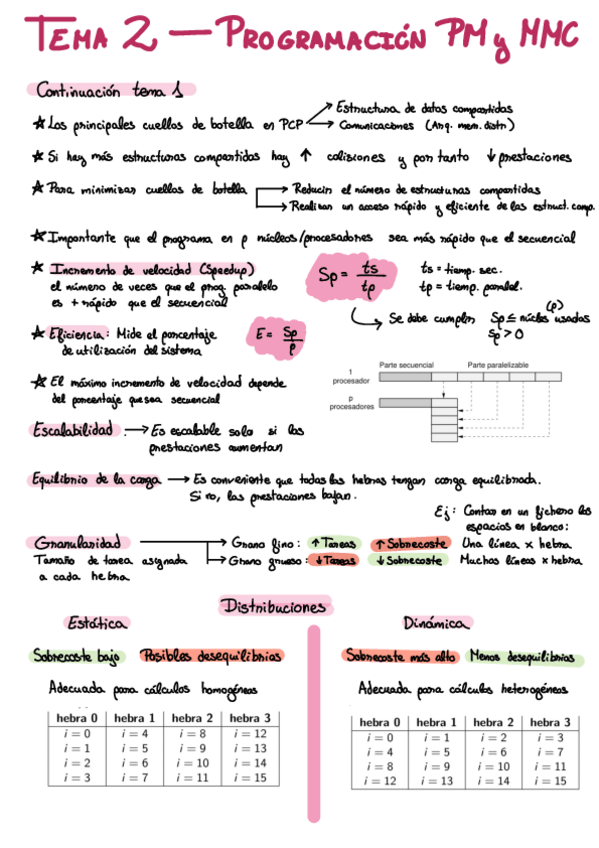 TEMA 2 — PROGRAMACIÓN PM y MMC
Continuación tema 1
★ Los principales cuellos de botella en PCP → Estructura de datos compartidas
→ Comunicaciones (Arq. mem. distr)
★ Si hay más estructuras compartidas hay ↑ colisiones y por tanto ↓ prestaciones
★ Para minimizar cuellos de botella → Reducir el número de estructuras compartidas
→ Realizar un acceso rápido y eficiente de las estruct. comp.
★ Importante que el programa en p núcleos/procesadores sea más rápido que el secuencial
★ Incremento de velocidad (Speedup)
el número de veces que el prog. paralelo
es + rápido que el secuencial
Sp = ts / tp
ts = tiemp. sec.
tp = tiemp. paralel.
→ Se debe cumplir Sp ≤ núcleos usados (p)
Sp > 0
★ Eficiencia: Mide el porcentaje
de utilización del sistema
E = Sp / p
★ El máximo incremento de velocidad depende
del porcentaje que sea secuencial
Parte secuencial Parte paralelizable
1
procesador
p
procesadores
Escalabilidad: → Es escalable solo si las
prestaciones aumentan
Equilibrio de la carga → Es conveniente que todas las hebras tengan carga equilibrada.
Si no, las prestaciones bajan.
Ej: Contar en un fichero los
espacios en blanco:
Granularidad → Grano fino: ↑ Tareas ↑ Sobrecoste Una línea x hebra
Tamaño de tarea asignada → Grano grueso: ↓ Tareas ↓ Sobrecoste Muchas líneas x hebra
a cada hebra
Distribuciones
Estática
Sobrecoste bajo Posibles desequilibrios
Adecuada para cálculos homogéneos
hebra 0 hebra 1 hebra 2 hebra 3
i = 0 i = 4 i = 8 i = 12
i = 1 i = 5 i = 9 i = 13
i = 2 i = 6 i = 10 i = 14
i = 3 i = 7 i = 11 i = 15
Dinámica
Sobrecoste más alto Menos desequilibrios
Adecuada para cálculos heterogéneos
hebra 0 hebra 1 hebra 2 hebra 3
i = 0 i = 1 i = 2 i = 3
i = 4 i = 5 i = 6 i = 7
i = 8 i = 9 i = 10 i = 11
i = 12 i = 13 i = 14 i = 15